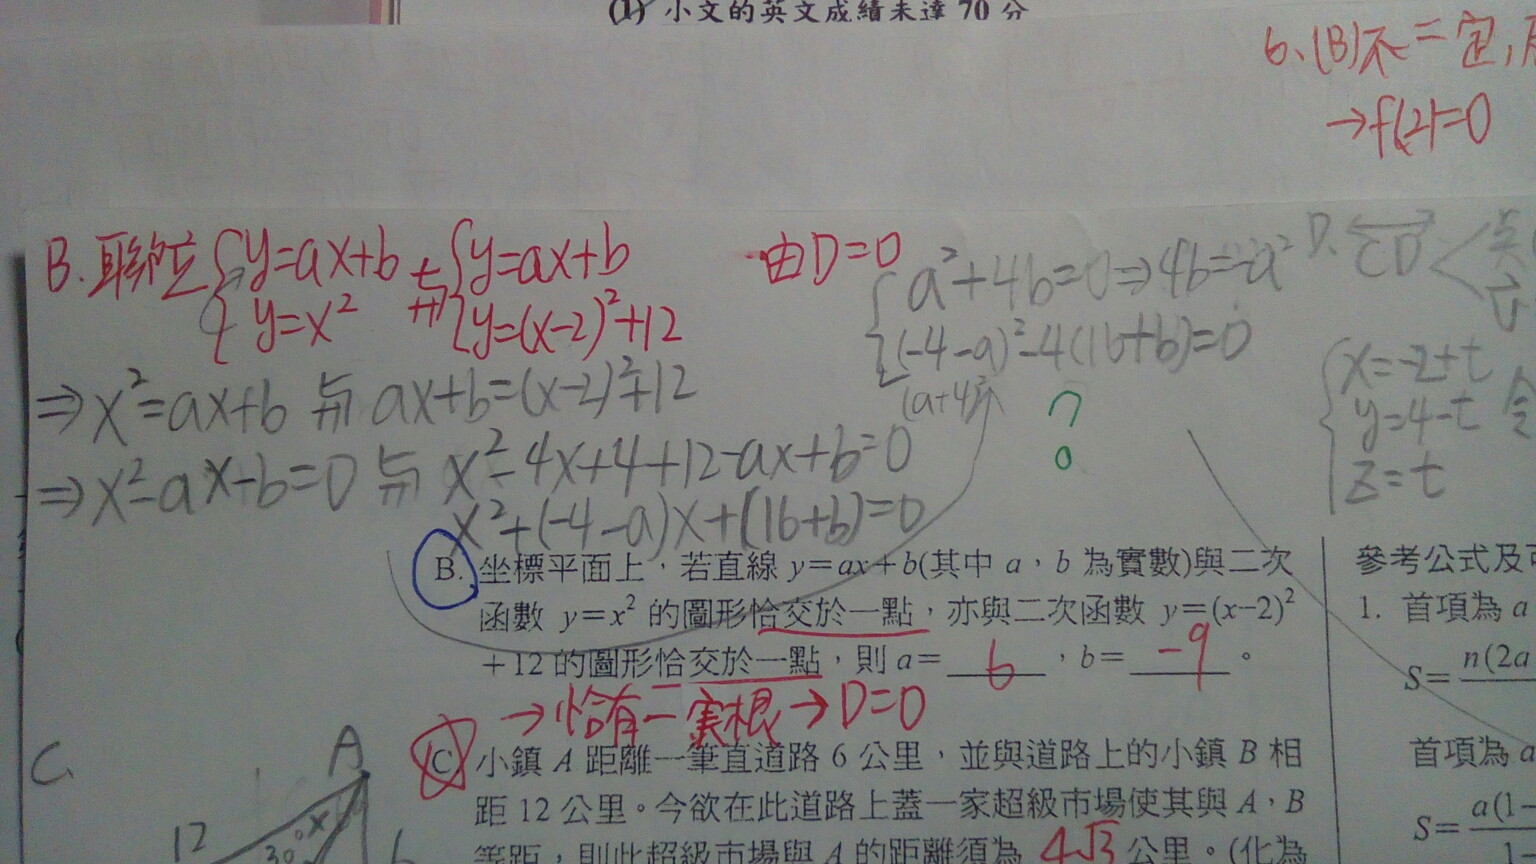 (1) 小文的英文成績未達 70 分
6、(B)不一定,
→f(2)=0
B. 聯立{y=ax+b 與{y=ax+b
y=x² y=(x-2)²+12
⇒x²=ax+b 與 ax+b=(x-2)²+12
⇒x²-ax-b=0 與 x²-4x+4+12-ax+b=0
x²+(-4-a)x+(16+b)=0
由D=0
{a²+4b=0⇒4b=-a²
(-4-a)²-4(16+b)=0
(a+4)²
?
D. CD
{x=-2+t
y=4-t 令
z=t
B. 坐標平面上,若直線 y=ax+b(其中 a,b 為實數)與二次
函數 y=x² 的圖形恰交於一點,亦與二次函數 y=(x-2)²
+12 的圖形恰交於一點,則 a= 6 ,b= -9 。
→恰有一實根→D=0
C 小鎮 A 距離一筆直道路 6 公里,並與道路上的小鎮 B 相
距 12 公里。今欲在此道路上蓋一家超級市場使其與 A,B
等距,則此超級市場與 A 的距離須為 4√3 公里。(化為
C.
A
12
x
30
6
參考公式及
1. 首項為 a
S= n(2a
首項為 a
S= a(1-